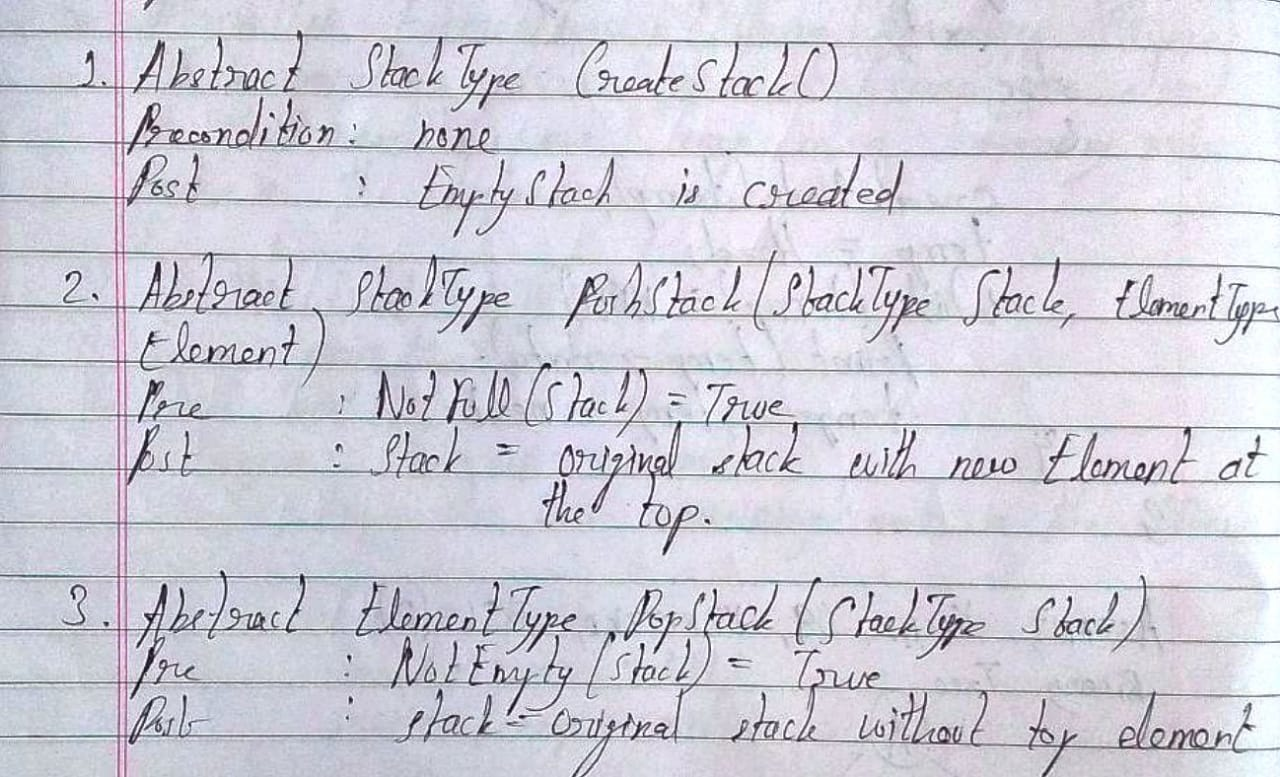 1. Abstract StackType CreateStack()
Precondition: none
Post : EmptyStack is created
2. Abstract StackType PushStack(StackType Stack, ElementType
Element)
Pre : NotFull(Stack) = True
Post : Stack = original stack with new Element at
the top.
3. Abstract ElementType PopStack(StackType Stack)
Pre : NotEmpty(Stack) = True
Post : stack = original stack without top element